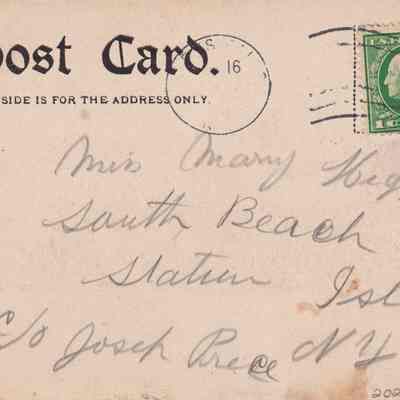 Post Card.
SIDE IS FOR THE ADDRESS ONLY.
16
1 CE
Miss Mary Hig
South Beach
Staten Isl
C/O Joseph Prece N Y
202